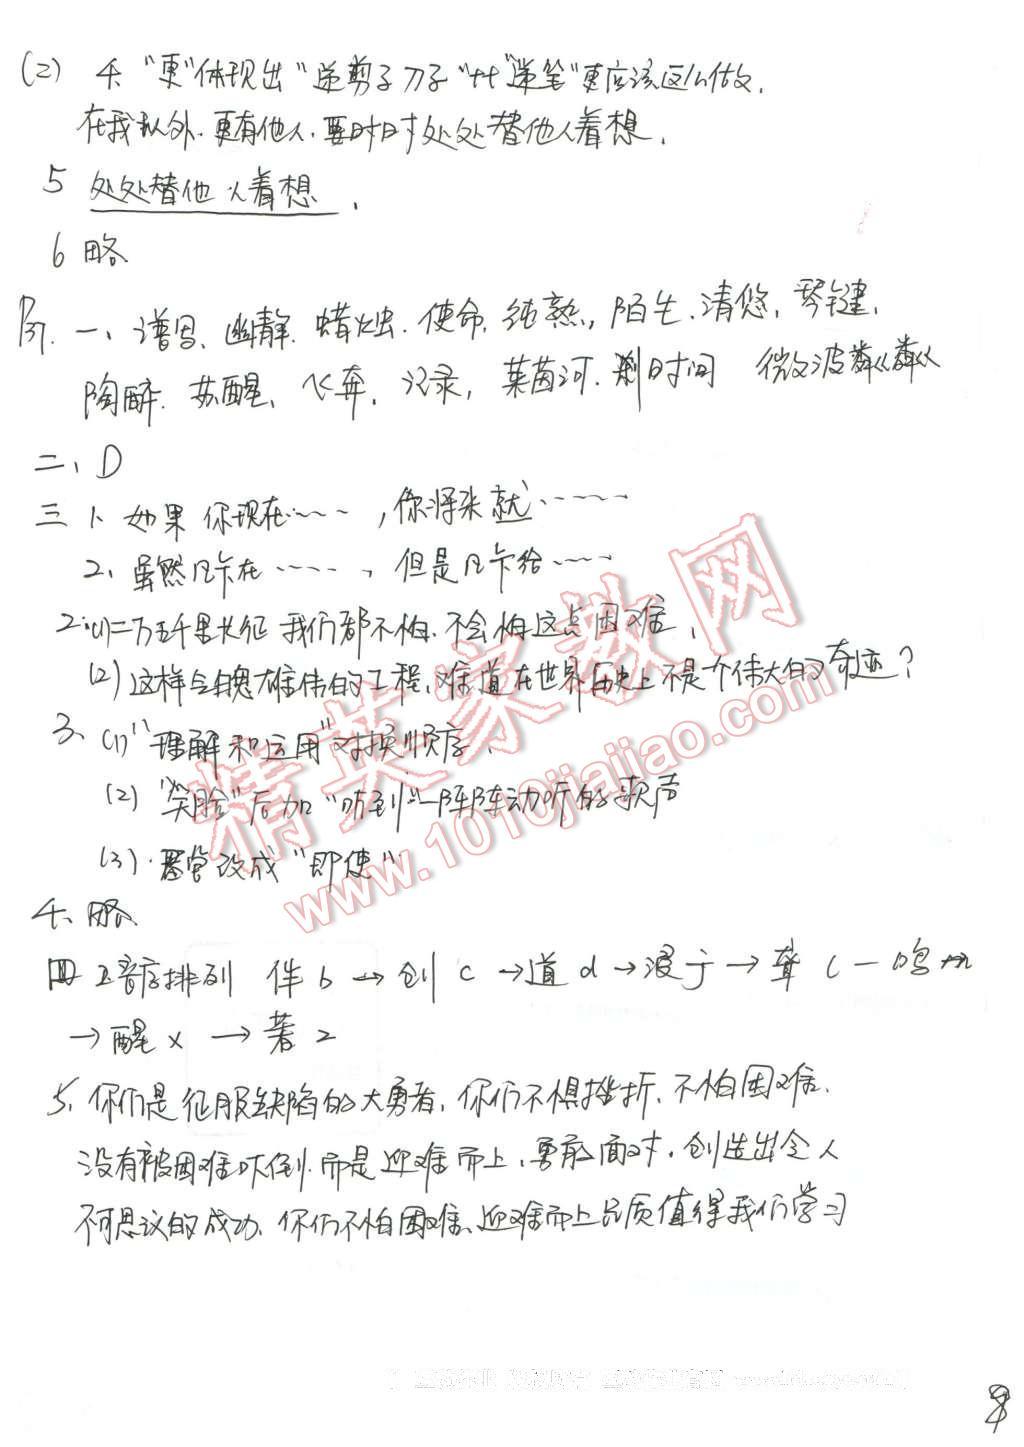 (2) 4. "更"体现出"递剪子刀子"比"递笔"更应该这么做.
在我以外.更有他人.要时时处处替他人着想.
5 处处替他人着想.
6 略
P37. 一、谱写、幽静. 蜡烛. 使命. 纯熟, 陌生.清悠, 琴键,
陶醉. 苏醒, 飞奔, 记录, 莱茵河. 刹时间 微波粼粼
二、D
三 1、如果 你现在……,你将来就……
2、虽然凡卡在……,但是凡卡给……
2.(1)二万五千里长征 我们都不怕.不会怕这点困难,
(2)这样气魄雄伟的工程,难道在世界历史上不是个伟大的奇迹?
3、(1)"理解和运用"对换顺序
(2)"笑脸"后加"听到"一阵阵动听的歌声
(3)尽管改成"即使"
4、略
四 1.音序排列 伴b→创c→道d→浪
→醒x →著z
5、你们是征服缺陷的大勇者,你们不惧挫折、不怕困难.
没有被困难吓倒.而是迎难而上,勇敢面对,创造出令人
不可思议的成功,你们不怕困难、迎难而上品质值得我们学习
精英家教网
www.1010jiajiao.com